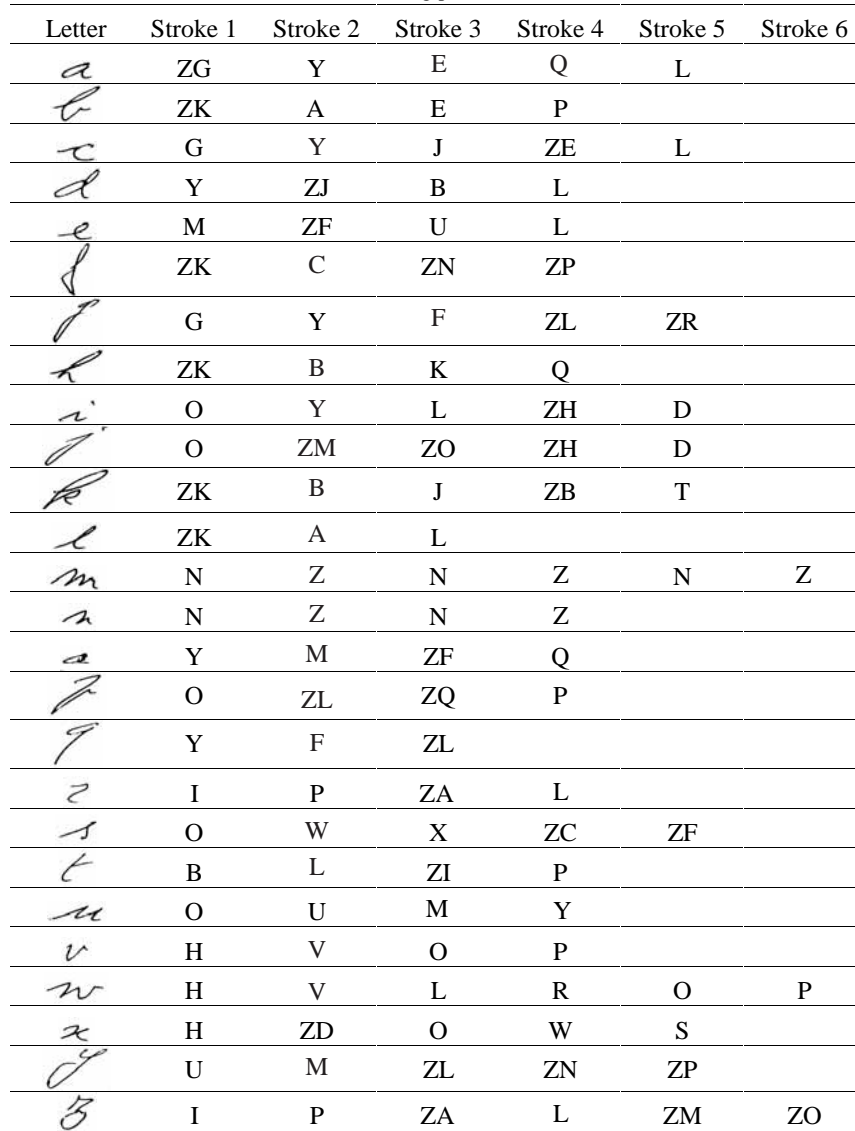 Letter Stroke 1 Stroke 2 Stroke 3 Stroke 4 Stroke 5 Stroke 6
a ZG Y E Q L
b ZK A E P
c G Y J ZE L
d Y ZJ B L
e M ZF U L
f ZK C ZN ZP
g G Y F ZL ZR
h ZK B K Q
i O Y L ZH D
j O ZM ZO ZH D
k ZK B J ZB T
l ZK A L
m N Z N Z N Z
n N Z N Z
o Y M ZF Q
p O ZL ZQ P
q Y F ZL
r I P ZA L
s O W X ZC ZF
t B L ZI P
u O U M Y
v H V O P
w H V L R O P
x H ZD O W S
y U M ZL ZN ZP
z I P ZA L ZM ZO